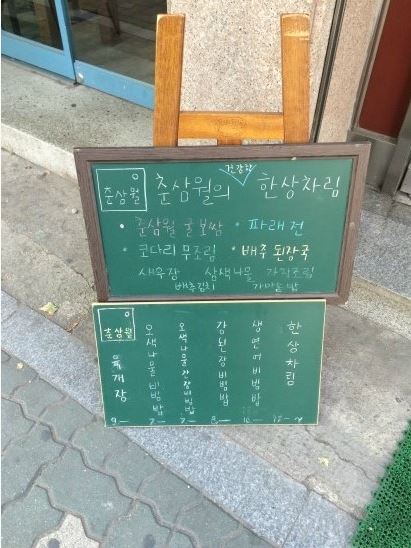 춘삼월
춘삼월의 건강한 한상차림
• 춘삼월 굴보쌈 • 파래전
• 코다리 무조림 • 배추 된장국
새우장 삼색나물 가지조림
배추김치 가마솥밥
춘삼월
육개장 9-
오색나물비빔밥 7-
오색나물간장비빔밥 7-
강된장비빔밥 8-
생연어비빔밥 10-
한상차림